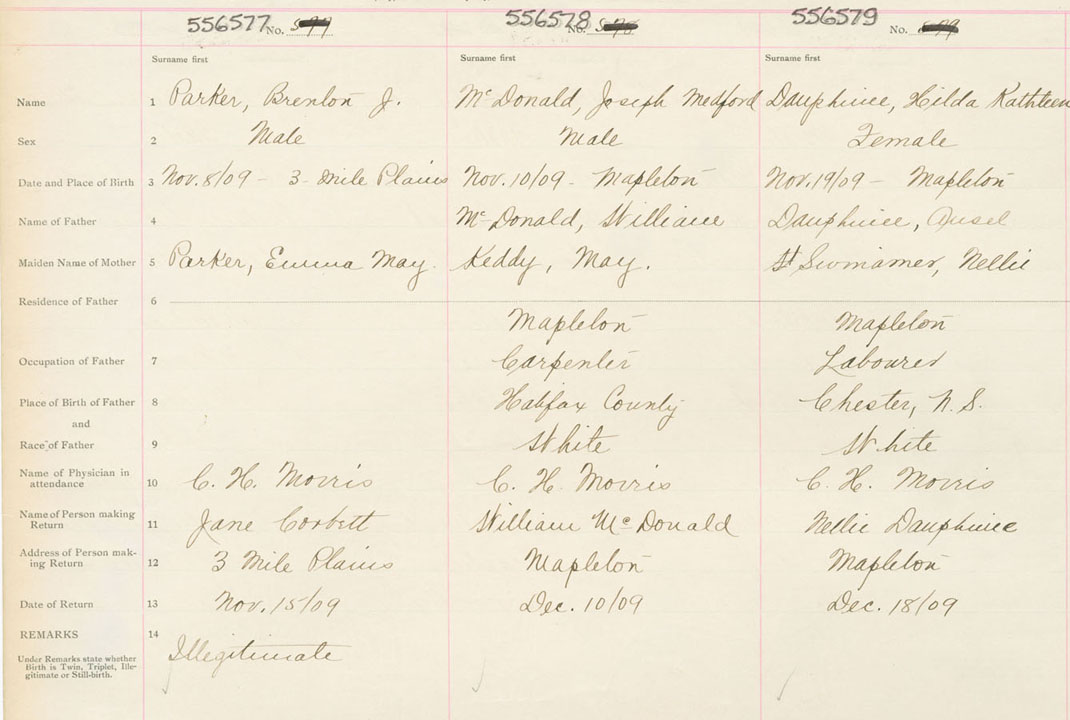 556577 No. 556578 No. 556579 No.
Surname first Surname first Surname first
Name 1 Parker, Brenton J. McDonald, Joseph Medford Dauphinee, Hilda Kathleen
Sex 2 Male Male Female
Date and Place of Birth 3 Nov. 8/09 - 3 - Mile Plains Nov. 10/09 - Mapleton Nov. 19/09 - Mapleton
Name of Father 4 McDonald, William Dauphinee, Ansel
Maiden Name of Mother 5 Parker, Emma May. Keddy, May. Nellie
Residence of Father 6
Mapleton Mapleton
Occupation of Father 7 Carpenter Labourer
Place of Birth of Father 8 Halifax County Chester, N.S.
and
Race of Father 9 White White
Name of Physician in
attendance 10 C. H. Morris C. H. Morris C. H. Morris
Name of Person making
Return 11 Jane Corbett William McDonald Nellie Dauphinee
Address of Person mak-
ing Return 12 3 Mile Plains Mapleton Mapleton
Date of Return 13 Nov. 15/09 Dec. 10/09 Dec. 18/09
REMARKS 14
Illegitimate
Under Remarks state whether
Birth is Twin, Triplet, Ille-
gitimate or Still-birth.